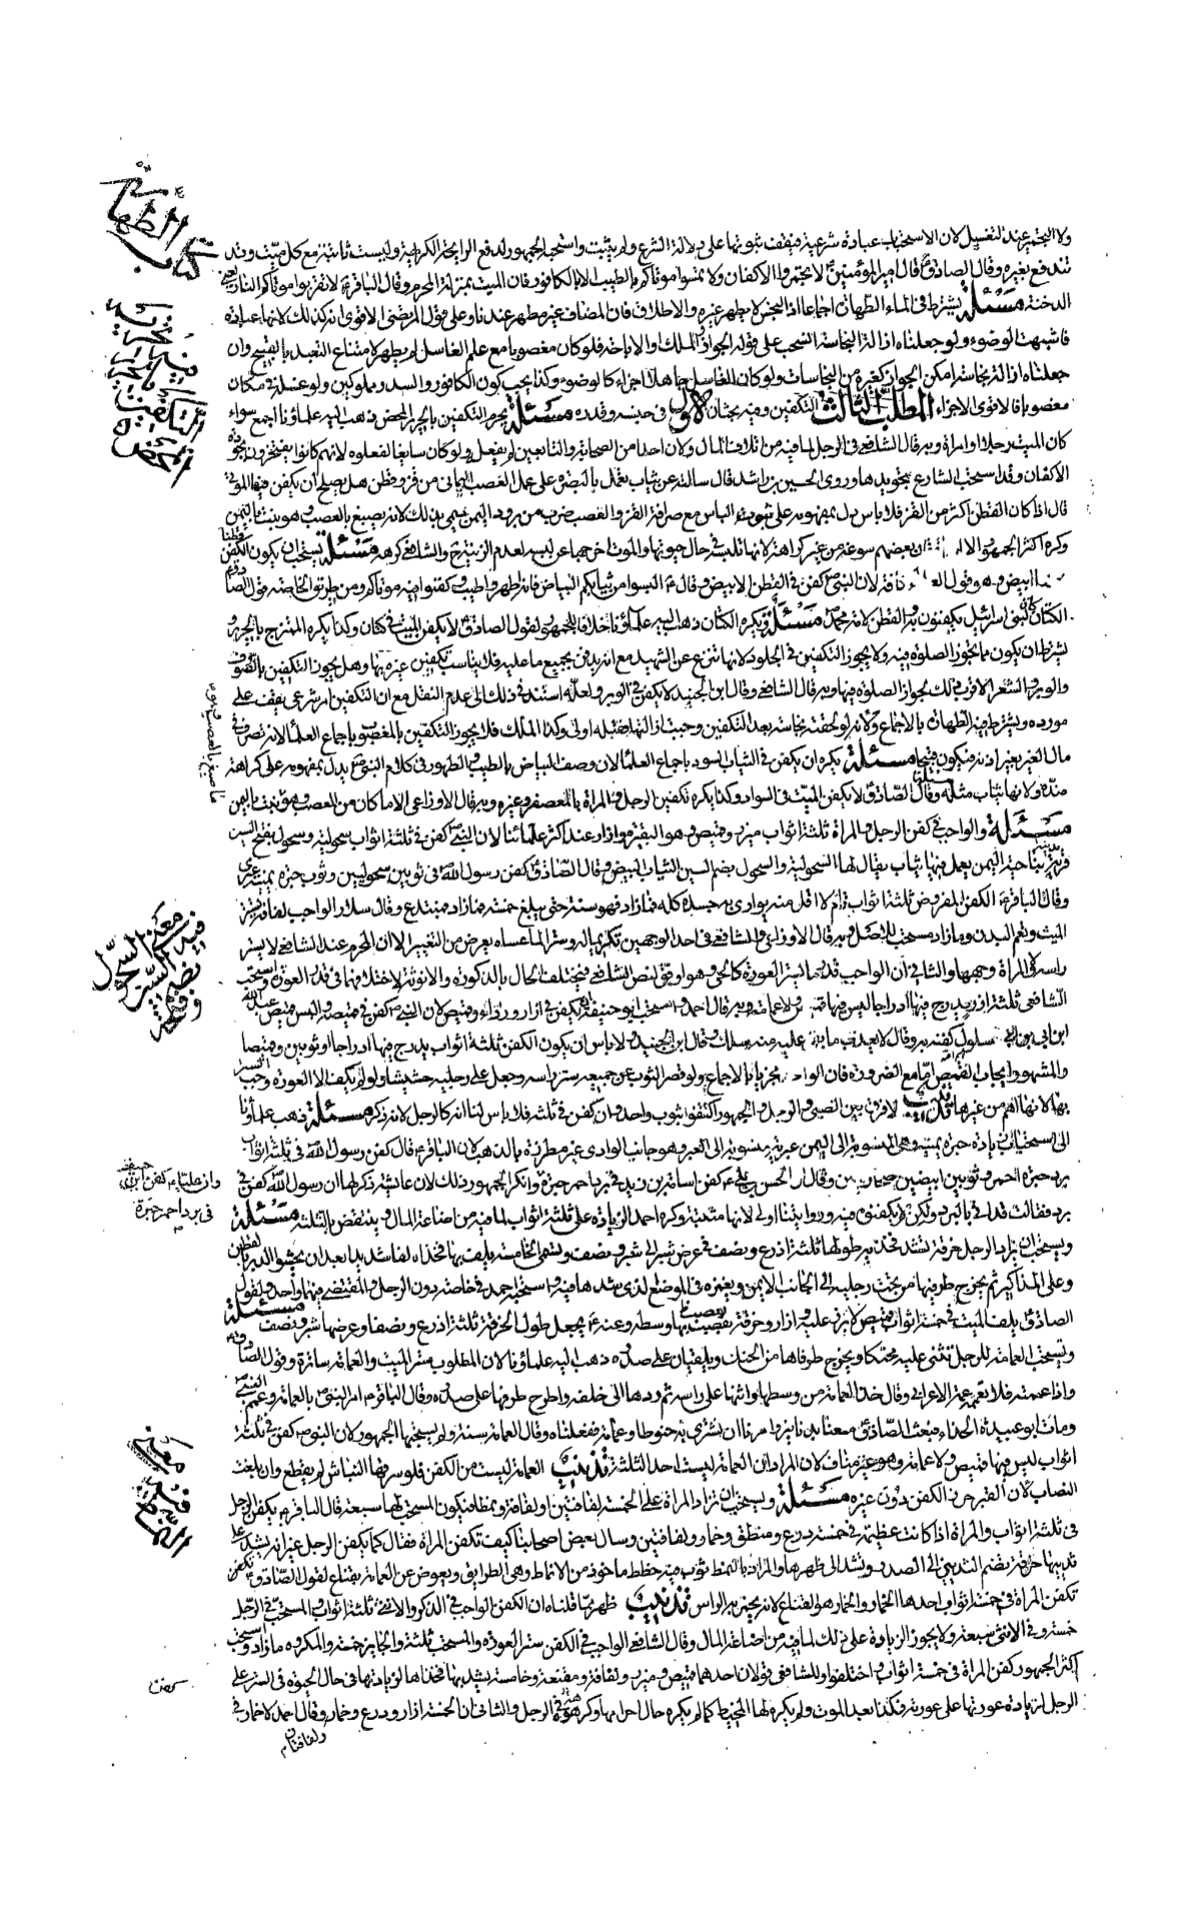 كتاب الطهارة
ولا التجمير عند التغسيل لان الاستحباب عبادة شرعية فيقف ثبوتها على دلالة الشرع ولم يثبت واستحبه الجمهور لدفع الرايحة الكريهة وليست ثابتة مع كل ميت وقد
تندفع بغيره وقال الصادق ع قال امير المؤمنين ع لا تجمروا الاكفان ولا تمسوا موتاكم بالطيب الا بالكافور فان الميت بمنزلة المحرم وقال الباقر ع لا تقربوا موتاكم النار يعني
الدخنة مسئلة يشترط في الماء الطهارة اجماعا اذ النجس لا يطهر غيره والاطلاق فان المضاف غير مطهر عندنا وعلى قول المرتضى الاقوى انه كذلك لانها عبادة
فاشبهت الوضوء ولو جعلناه ازالة النجاسة انسحب على قوله الجواز والملك والاباحة فلو كان مغصوبا مع علم الغاسل لم يطهر لامتناع التعبد بالقبيح وان
جعلناه ازالة نجاسة امكن الجواز كغيره من النجاسات ولو كان الغاسل جاهلا اجزاء كالوضوء وكذا يجب كون الكافور والسدر مملوكين ولو غسله في مكان
مغصوب فالاقوى الاجزاء المطلب الثالث التكفين وفيه بحثان الاول في جنسه وقدره مسئلة يحرم التكفين بالحرير المحض ذهب اليه علماؤنا اجمع سواء
كان الميت رجلا او امراة وبه قال الشافعي في الرجل لما فيه من اتلاف المال ولان احدا من الصحابة والتابعين لم يفعله ولو كان سايغا لفعلوه لانهم كانوا يفتخرون بجودة
الاكفان وقد استحب الشارع تجويدها وروى الحسين بن راشد قال سالته عن ثياب تعمل بالبصرة على عمل العصب اليماني من قز وقطن هل يصلح ان يكفن فيها الموتى
قال اذا كان القطن اكثر من القز فلا باس دل بمفهومه على ثبوت الباس مع صرافة القز والعصب ضرب من برود اليمن سمي بذلك لانه يصبغ بالعصب وهو نبت باليمن
وكره اكثر الجمهور بعضهم سوغه من غير كراهة لانها تلبسه في حال حيوتها والموت اخرجها عن لبسه لعدم الزينة ح والشافعي كرهه مسئلة يستحب ان يكون الكفن قطنا
ابيض وهو قول كافة لان النبي ص كفن في القطن الابيض وقال ع البسوا من ثيابكم البياض فانه اطهر واطيب وكفنوا فيه موتاكم ومن طريق الخاصة قول الصادق ع
الكتان كان لبني اسرائيل يكفنون به والقطن لامة محمد ص مسئلة ويكره الكتان ذهب اليه علماؤنا خلافا للجمهور لقول الصادق ع لا يكفن الميت في كتان وكذا يكره الممتزج بالحرير و
يشترط ان يكون مما يجوز الصلوة فيه ولا يجوز التكفين في الجلود لانها تنزع عن الشهيد مع انه يدفن بجميع ما عليه فلا يناسب تكفين غيره بها وهل يجوز التكفين بالصوف
والوبر والشعر الاقرب ذلك لجواز الصلوة فيها وبه قال الشافعي وقال ابن الجنيد لا يكفن في الوبر ولعله استند في ذلك الى عدم النقل مع ان التكفين امر شرعي يقف على
مورده ويشترط فيه الطهارة بالاجماع ولانه لو لحقته نجاسة بعد التكفين وجبت ازالتها فقبله اولى وكذا الملك فلا يجوز التكفين بالمغصوب باجماع العلماء لانه تصرف في
مال الغير بغير اذنه فيكون قبيحا مسئلة يكره ان يكفن في الثياب السود باجماع العلماء لان وصف البياض بالطيب والطهور في كلام النبي ص يدل بمفهومه على كراهة
ضده ولانها ثياب مثلة وقال الصادق ع لا يكفن الميت في السواد وكذا يكره تكفين الرجل والمراة بالمعصفر وغيره وبه قال الاوزاعي الا ما كان من العصب وهو نبت باليمن
مسئلة والواجب في كفن الرجل والمراة ثلثة اثواب ميزر وقميص وهو البقيرة وازار عند اكثر علمائنا لان النبي ص كفن في ثلثة اثواب سحولية وسحول بفتح السين
قرية بناحية اليمن يعمل فيها ثياب يقال لها السحولية والسحول بضم السين الثياب البيض وقال الصادق ع كفن رسول الله ص في ثوبين سحوليين وثوب حبرة يمنية عبري
وقال الباقر ع الكفن المفروض ثلثة اثواب تام لا اقل منه يوارى به جسده كله فما زاد فهو سنة حتى يبلغ خمسة فما زاد فمبتدع وقال سلار الواجب لفافة يستر
الميت وتعم البدن وما زاد مستحب للاصل وبه قال الاوزاعي والشافعي في احد الوجهين تكريما له وسترا لما عساه يعرض من التغيير الا ان المحرم عند الشافعي لا يستر
راسه وفي المراة وجهها والثاني ان الواجب قدر ما يستر العورة كالحي وهو اوفق لنص الشافعي فيختلف الحال بالذكورة والانوثة لاختلافهما في قدر العورة واستحب
الشافعي ثلثة ازر يدرج فيها ادراجا ليس فيها قميص ولا عمامة وبه قال احمد واستحب ابو حنيفة ان يكفن في ازار ورداء وقميص لان النبي ص كفن في قميصه والبس قميصه عبد الله
ابن ابي بن سلول كفنه به وقال لا يعذب ما بقي عليه منه سلك وقال ابن الجنيد ولا باس ان يكون الكفن ثلثة اثواب يدرج فيها ادراجا او ثوبين وقميصا
والمشهور ايجاب القميص اما مع الضرورة فان الواحد يجزي بالاجماع ولو قصر الثوب عن جميعه ستر راسه وجعل على رجليه حشيشا ولو لم يكف الا العورة وجب الستر
بها لانها اهم من غيرها تذنيب لا فرق بين الصبي والرجل والجمهور اكتفوا بثوب واحد وان كفن في ثلثة فلا باس لنا انه كالرجل لانه ذكر مسئلة ذهب علماؤنا
الى استحباب زيادة حبرة يمنية وهي المنسوبة الى اليمن عبرية منسوبة الى العبر وهو جانب الوادي غير مطرزة بالذهب لان الباقر ع قال كفن رسول الله ص في ثلثة اثواب
برد حبرة احمر وثوبين ابيضين صحاريين وقال ان الحسن بن علي ع كفن اسامة بن زيد في برد احمر حبرة وانكر الجمهور ذلك لان عايشة ذكر لها ان رسول الله ص كفن في
برد فقالت قد اتي بالبرد ولكن لم يكفنوه فيه وروايتنا اولى لانها مثبتة وكره احمد الزيادة على ثلثة اثواب لما فيه من اضاعة المال وينتقض بالثلثة مسئلة
ويستحب ان يزاد الرجل خرقة لشد فخذيه طولها ثلثة اذرع ونصف في عرض شبر الى شبر ونصف وتسمى الخامسة يلف بها فخذاه لفا شديدا بعد ان يحشو الدبر بالقطن
وعلى المذاكير ثم يخرج طرفها من تحت رجليه الى الجانب الايمن ويغمزه في الموضع الذي شدها فيه واستحبه احمد في خاصته دون الرجل والمقتضي فيهما واحد ولقول
الصادق ع يكفن الميت في خمسة اثواب قميص لا يزر عليه وازار وخرقة يعصب بها وسطه وعنه ع يجعل طول الخرقة ثلثة اذرع ونصفا وعرضها شبر ونصف مسئلة
وتستحب العمامة للرجل تثنى عليه محنكا ويخرج طرفاها من الحنك ويلقيان على صدره ذهب اليه علماؤنا لان المطلوب ستر الميت والعمامة ساترة وقول الصادق ع
واذا عممته فلا تعممه عمة الاعرابي وقال خذ العمامة من وسطها وانشرها على راسه ثم ردها الى خلفه واطرح طرفيها على صدره وقال الباقر ع امر النبي ص بالعمامة وعمم النبي ص
ومات ابو عبيدة الحذاء فبعث الصادق ع معنا بدنانير وامرنا ان نشتري به حنوطا وعمامة ففعلناه وقال العمامة سنة ولم يستحبها الجمهور لان النبي ص كفن في ثلثة
اثواب ليس فيها قميص ولا عمامة وهو غير مناف لان المراد ان العمامة ليست احد الثلثة تذنيب العمامة ليست من الكفن فلو سرقها النباش لم يقطع وان بلغت
النصاب لان القبر حرز الكفن دون غيره مسئلة ويستحب ان تزاد المراة على الخمسة لفافتين او لفافة ونمطا فيكون المستحب لها سبعة قال الباقر ع يكفن الرجل
في ثلثة اثواب والمراة اذا كانت عظيمة في خمسة درع ومنطق وخمار ولفافتين وسال بعض اصحابنا كيف تكفن المراة فقال كما يكفن الرجل غير انه يشد على
ثدييها خرقة يضم الثديين الى الصدر وتشد الى ظهرها والمراد بالنمط ثوب فيه خطط ماخوذ من الانماط وهي الطرايق ويعوض عن العمامة بقناع لقول الصادق ع تكفن
تكفن المراة في خمسة اثواب احدها الخمار والخمار هو القناع لانه يخمر به الراس تذنيب ظهر بما قلناه ان الكفن الواجب في الذكر والانثى ثلثة اثواب والمستحب في الرجل
خمسة وفي الانثى سبعة ولا يجوز الزيادة على ذلك لما فيه من اضاعة المال وقال الشافعي الواجب في الكفن ستر العورة والمستحب ثلثة والجايز خمسة والمكروه ما زاد واستحب
اكثر الجمهور كفن المراة في خمسة اثواب واختلفوا وللشافعي قولان احدهما قميص وميزر ولفافة ومقنعة وخامسة يشد بها فخذاها لزيادتها في حال الحيوة في الستر على
الرجل لزيادة عورتها على عورته فكذا بعد الموت ولم يكره لها المخيط كما لم يكره حال احرامها وكرهوه في الرجل والثاني ان الخمسة ازار ودرع وخمار وقال احمد لا خمار في
ولفافتان
في برد احمر حبرة